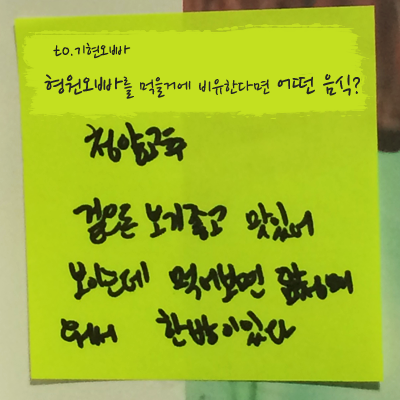 to.기현오빠
형원오빠를 먹을거에 비유한다면 어떤 음식?
청양고추
겉으론 보기좋고 맛있어
보이는데 먹어보면
한방이있다